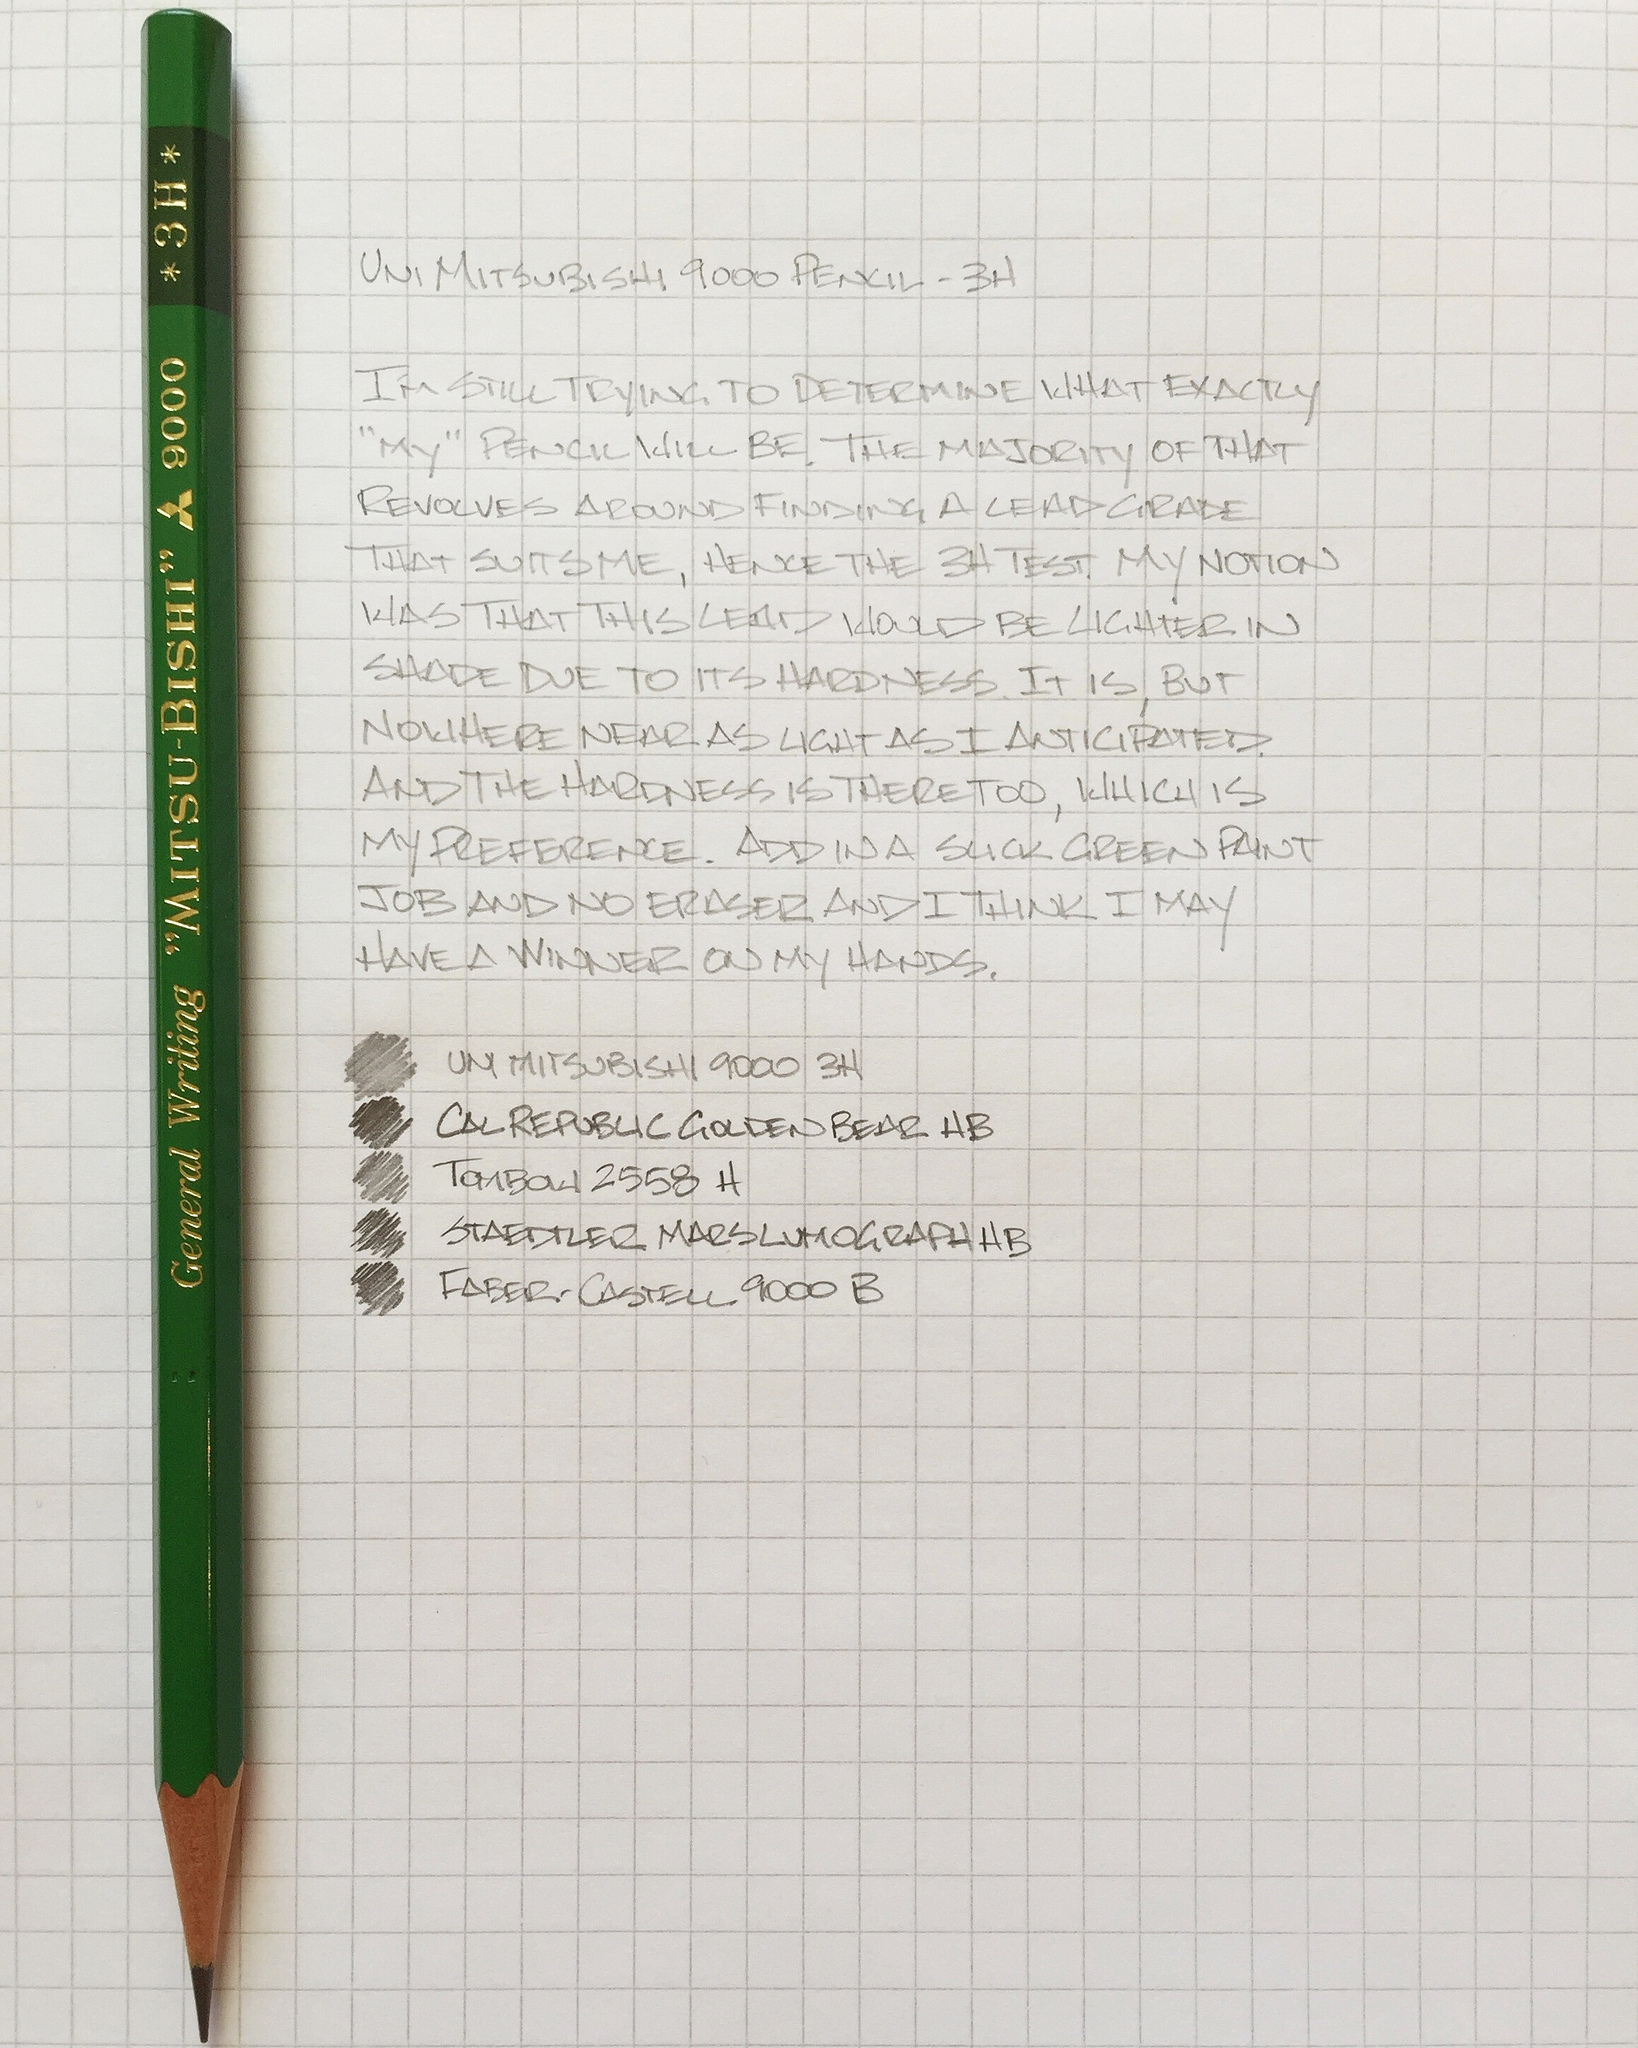 * 3H *
9000
"MITSU-BISHI"
General Writing
UNI MITSUBISHI 9000 PENCIL - 3H
I'M STILL TRYING TO DETERMINE WHAT EXACTLY
"MY" PENCIL WILL BE. THE MAJORITY OF THAT
REVOLVES AROUND FINDING A LEAD GRADE
THAT SUITS ME, HENCE THE 3H TEST. MY NOTION
WAS THAT THIS LEAD WOULD BE LIGHTER IN
SHADE DUE TO ITS HARDNESS. IT IS, BUT
NOWHERE NEAR AS LIGHT AS I ANTICIPATED.
AND THE HARDNESS IS THERE TOO, WHICH IS
MY PREFERENCE. ADD IN A SLICK GREEN PAINT
JOB AND NO ERASER AND I THINK I MAY
HAVE A WINNER ON MY HANDS.
UNI MITSUBISHI 9000 3H
CAL REPUBLIC GOLDEN BEAR HB
TOMBOW 2558 H
STAEDTLER MARS LUMOGRAPH HB
FABER-CASTELL 9000 B